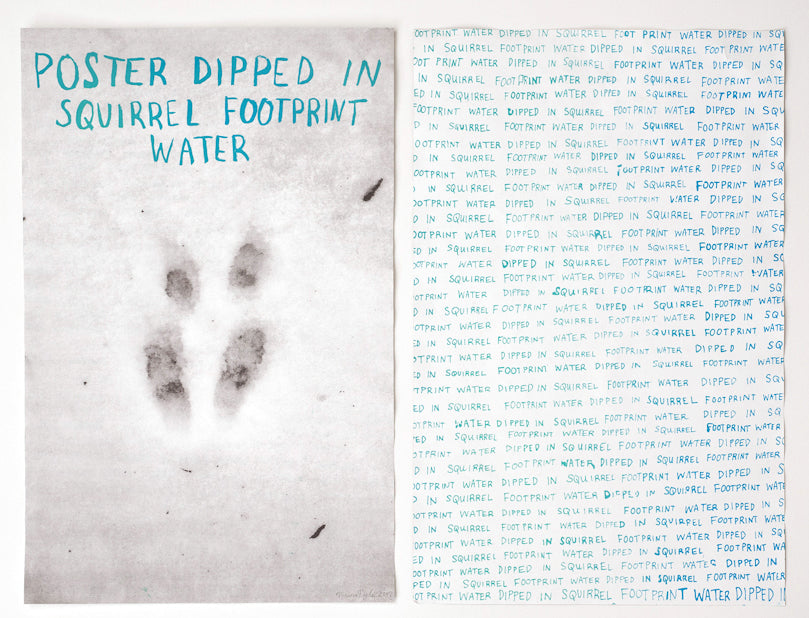 POSTER DIPPED IN
SQUIRREL FOOTPRINT
WATER
OOTPRINT WATER DIPPED IN SQUIRREL FOOT PRINT WATER DIPPED IN SQ
IN SQUIRREL FOOTPRINT WATER DIPPED IN SQUIRREL FOOTPRINT WATE
OOT PRINT WATER DIPPED IN SQUIRREL FOOTPRINT WATER DIPPED IN SQ
IN SQUIRREL FOOTPRINT WATER DIPPED IN SQUIRREL FOOTPRINT WATER
ED IN SQUIRREL FOOTPRINT WATER DIPPED IN SQUIRREL FOOTPRINT WATE
FOOTPRINT WATER DIPPED IN SQUIRREL FOOTPRINT WATER DIPPED IN SQU
D IN SQUIRREL FOOTPRINT WATER DIPPED IN SQUIRREL FOOTPRINT WATER
OOTPRINT WATER DIPPED IN SQUIRREL FOOTPRINT WATER DIPPED IN SQ
D IN SQUIRREL FOOTPRINT WATER DIPPED IN SQUIRREL FOOTPRINT WATER
OOTPRINT WATER DIPPED IN SQUIRREL FOOTPRINT WATER DIPPED IN SQ
IN SQUIRREL FOOTPRINT WATER DIPPED IN SQUIRREL FOOTPRINT WATER
OOTPRINT WATER DIPPED IN SQUIRREL FOOTPRINT WATER DIPPED IN SQ
D IN SQUIRREL FOOTPRINT WATER DIPPED IN SQUIRREL FOOTPRINT WATER
OOTPRINT WATER DIPPED IN SQUIRREL FOOTPRINT WATER DIPPED IN SQU
ED IN SQUIRREL FOOTPRINT WATER DIPPED IN SQUIRREL FOOTPRINT WATER
OTPRINT WATER DIPPED IN SQUIRREL FOOTPRINT WATER DIPPED IN SQU
D IN SQUIRREL FOOTPRINT WATER DIPPED IN SQUIRREL FOOTPRINT WATER
OTPRINT WATER DIPPED IN SQUIRREL FOOTPRINT WATER DIPPED IN SQU
D IN SQUIRREL FOOTPRINT WATER DIPPED IN SQUIRREL FOOTPRINT WATER
OOTPRINT WATER DIPPED IN SQUIRREL FOOTPRINT WATER DIPPED IN SQU
ED IN SQUIRREL FOOTPRINT WATER DIPPED IN SQUIRREL FOOTPRINT WATE
OTPRINT WATER DIPPED IN SQUIRREL FOOTPRINT WATER DIPPED IN SQ
ED IN SQUIRREL FOOTPRINT WATER DIPPED IN SQUIRREL FOOTPRINT WATER
TPRINT WATER DIPPED IN SQUIRREL FOOTPRINT WATER DIPPED IN SQU
ED IN SQUIRREL FOOTPRINT WATER DIPPED IN SQUIRREL FOOTPRINT WATER
OTPRINT WATER DIPPED IN SQUIRREL FOOTPRINT WATER DIPPED IN SQ
ED IN SQUIRREL FOOTPRINT WATER DIPPED IN SQUIRREL FOOTPRINT WATER
OTPRINT WATER DIPPED IN SQUIRREL FOOTPRINT WATER DIPPED IN SQ
D IN SQUIRREL FOOT PRINT WATER DIPPED IN SQUIRREL FOOTPRINT WATER
OOTPRINT WATER DIPPED IN SQUIRREL FOOTPRINT WATER DIPPED IN S
D IN SQUIRREL FOOTPRINT WATER DIPPED IN SQUIRREL FOOTPRINT WATE
OOTPRINT WATER DIPPED IN SQUIRREL FOOTPRINT WATER DIPPED IN SQ
D IN SQUIRREL FOOTPRINT WATER DIPPED IN SQUIRREL FOOTPRINT WATE
OOTPRINT WATER DIPPED IN SQUIRREL FOOTPRINT WATER DIPPED IN SQ
ED IN SQUIRREL FOOTPRINT WATER DIPPED IN SQUIRREL FOOTPRINT WA
OOTPRINT WATER DIPPED IN SQUIRREL FOOTPRINT WATER DIPPED IN
PED IN SQUIRREL FOOTPRINT WATER DIPPED IN SQUIRREL FOOTPRINT WATER
OOTPRINT WATER DIPPED IN SQUIRREL FOOTPRINT WATER DIPPED I